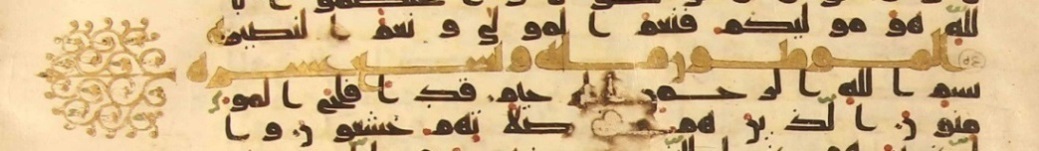 لله هو موليكم فنعم المولى ونعم النصير
المومنون مائه وتسع عشره
بسم الله الرحمن الرحيم قد افلح المو
منون الذين هم في صلاتهم خشعون وا